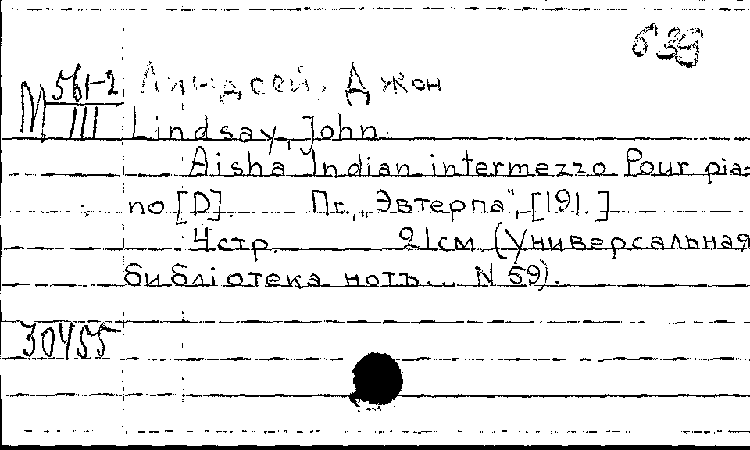 639
М 561-2 Линдсей, Джон
III Lindsay, John
Aisha Indian intermezzo Pour pia=
no [D]. Пг., „Эвтерпа", [191.]
4стр. 21см (Универсальная
библiотека нотъ... N 59).
30455